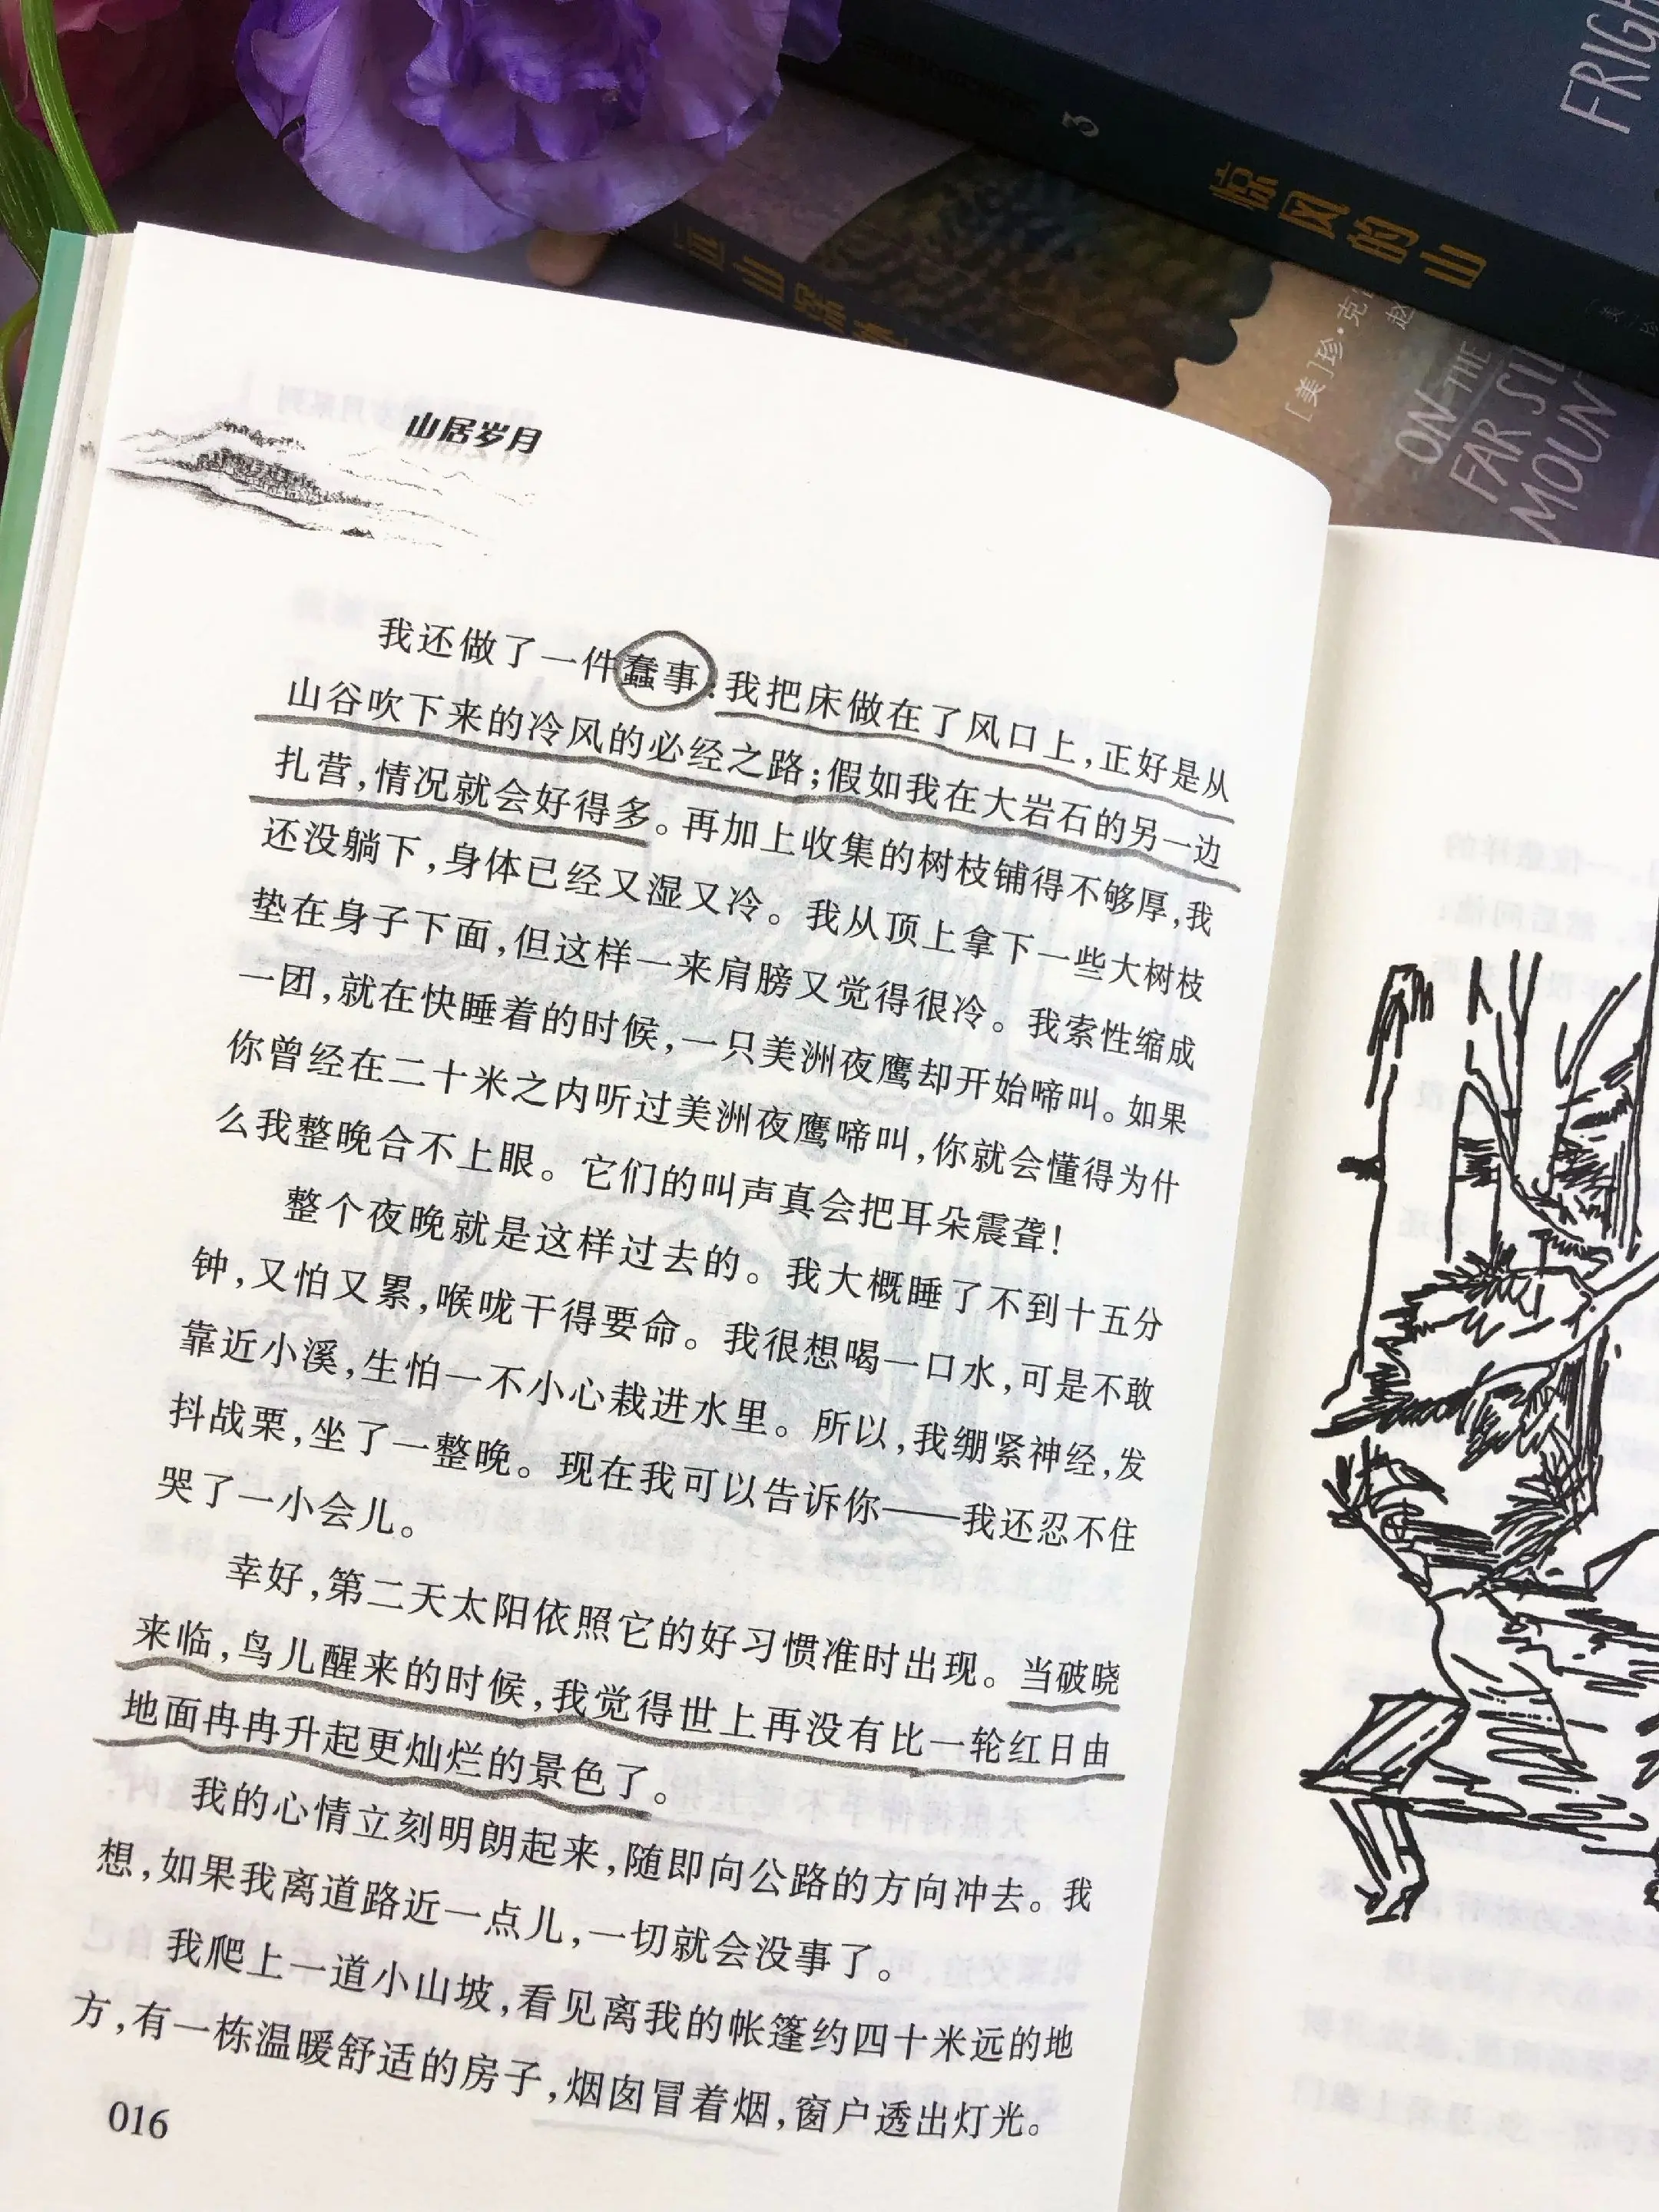 FRIGH
3
惊风的山
山居岁月
[美]珍·克
赵
ON THE
FAR SI
MOUN
我还做了一件蠢事:我把床做在了风口上,正好是从
山谷吹下来的冷风的必经之路;假如我在大岩石的另一边
扎营,情况就会好得多。再加上收集的树枝铺得不够厚,我
还没躺下,身体已经又湿又冷。我从顶上拿下一些大树枝
垫在身子下面,但这样一来肩膀又觉得很冷。我索性缩成
一团,就在快睡着的时候,一只美洲夜鹰却开始啼叫。如果
你曾经在二十米之内听过美洲夜鹰啼叫,你就会懂得为什
么我整晚合不上眼。它们的叫声真会把耳朵震聋!
整个夜晚就是这样过去的。我大概睡了不到十五分
钟,又怕又累,喉咙干得要命。我很想喝一口水,可是不敢
靠近小溪,生怕一不小心栽进水里。所以,我绷紧神经,发
抖战栗,坐了一整晚。现在我可以告诉你——我还忍不住
哭了一小会儿。
幸好,第二天太阳依照它的好习惯准时出现。当破晓
来临,鸟儿醒来的时候,我觉得世上再没有比一轮红日由
地面冉冉升起更灿烂的景色了。
我的心情立刻明朗起来,随即向公路的方向冲去。我
想,如果我离道路近一点儿,一切就会没事了。
我爬上一道小山坡,看见离我的帐篷约四十米远的地
方,有一栋温暖舒适的房子,烟囱冒着烟,窗户透出灯光。
016